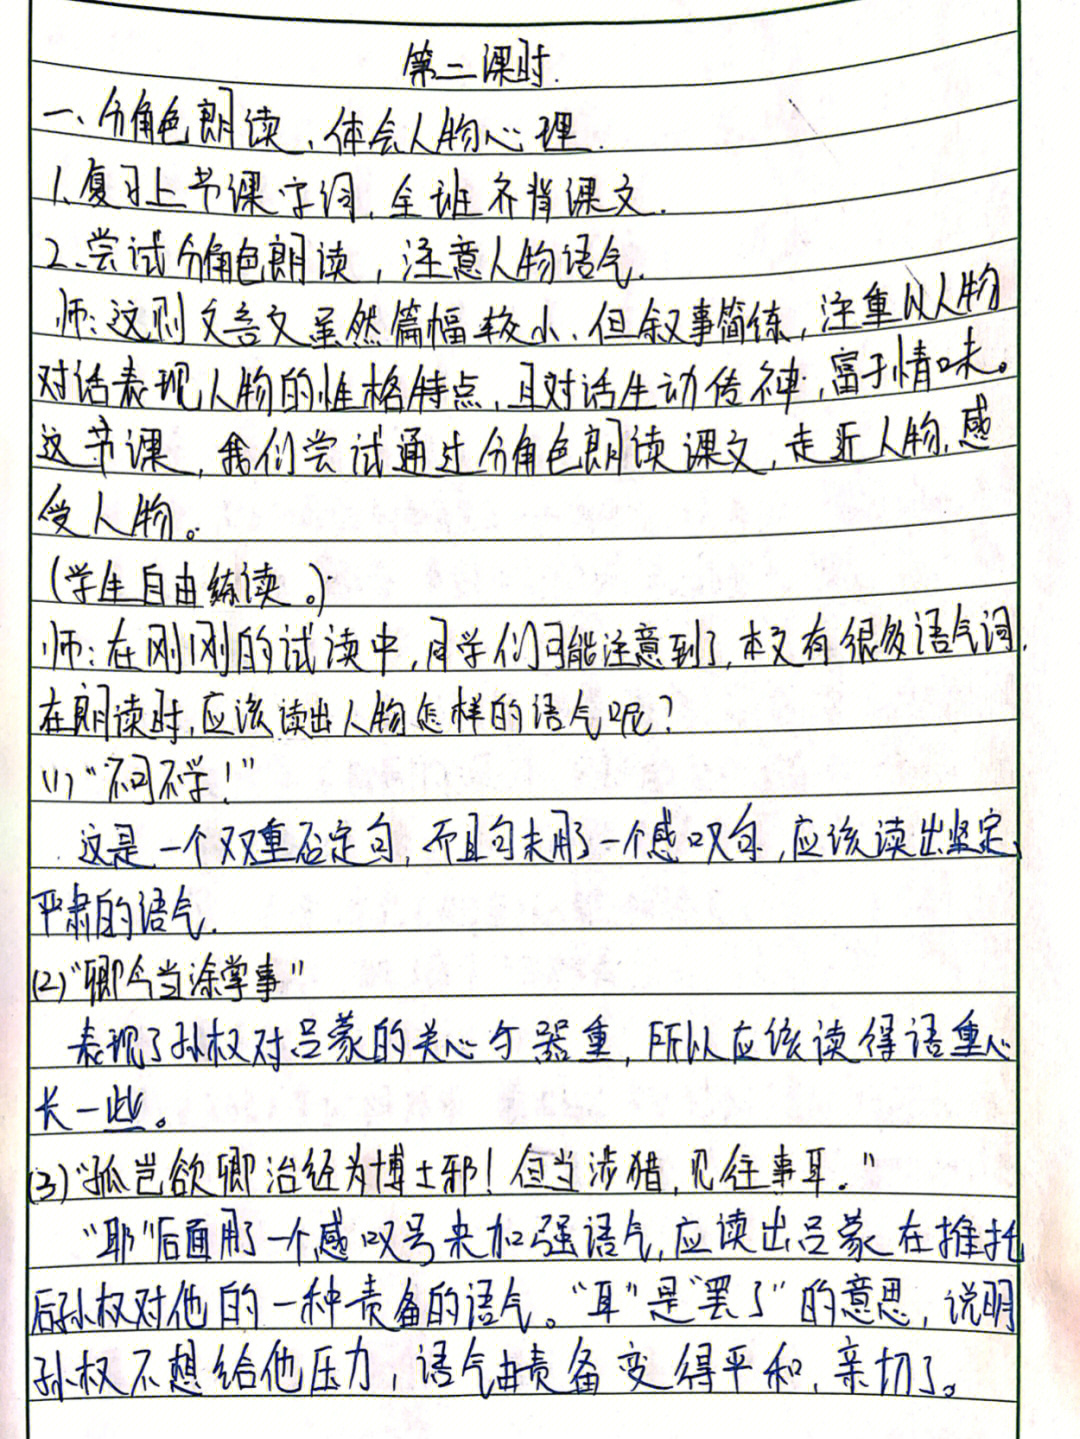 第二课时.
一、分角色朗读、体会人物心理.
1.复习上节课字词,全班齐背课文.
2、尝试分角色朗读,注意人物语气.
师:这则文言文虽然篇幅较小、但叙事简练,注重以人物
对话表现人物的性格特点,且对话生动传神,富于情味。
这节课,我们尝试通过分角色朗读课文,走近人物,感
受人物。
(学生自由练读。)
师:在刚刚的试读中,同学们可能注意到了,本文有很多语气词,
在朗读时,应该读出人物怎样的语气呢?
(1)“不可不学!”
这是一个双重否定句,而且句末用了一个感叹句,应该读出坚定、
严肃的语气.
(2)“卿今当涂掌事”
表现了孙权对吕蒙的关心与器重,所以应该读得语重心
长一些。
(3)“孤岂欲卿治经为博士邪!但当涉猎,见往事耳.”
“耶”后面用了一个感叹号来加强语气,应读出吕蒙在推托
后孙权对他的一种责备的语气。“耳”是“罢了”的意思,说明
孙权不想给他压力,语气由责备变得平和、亲切了。